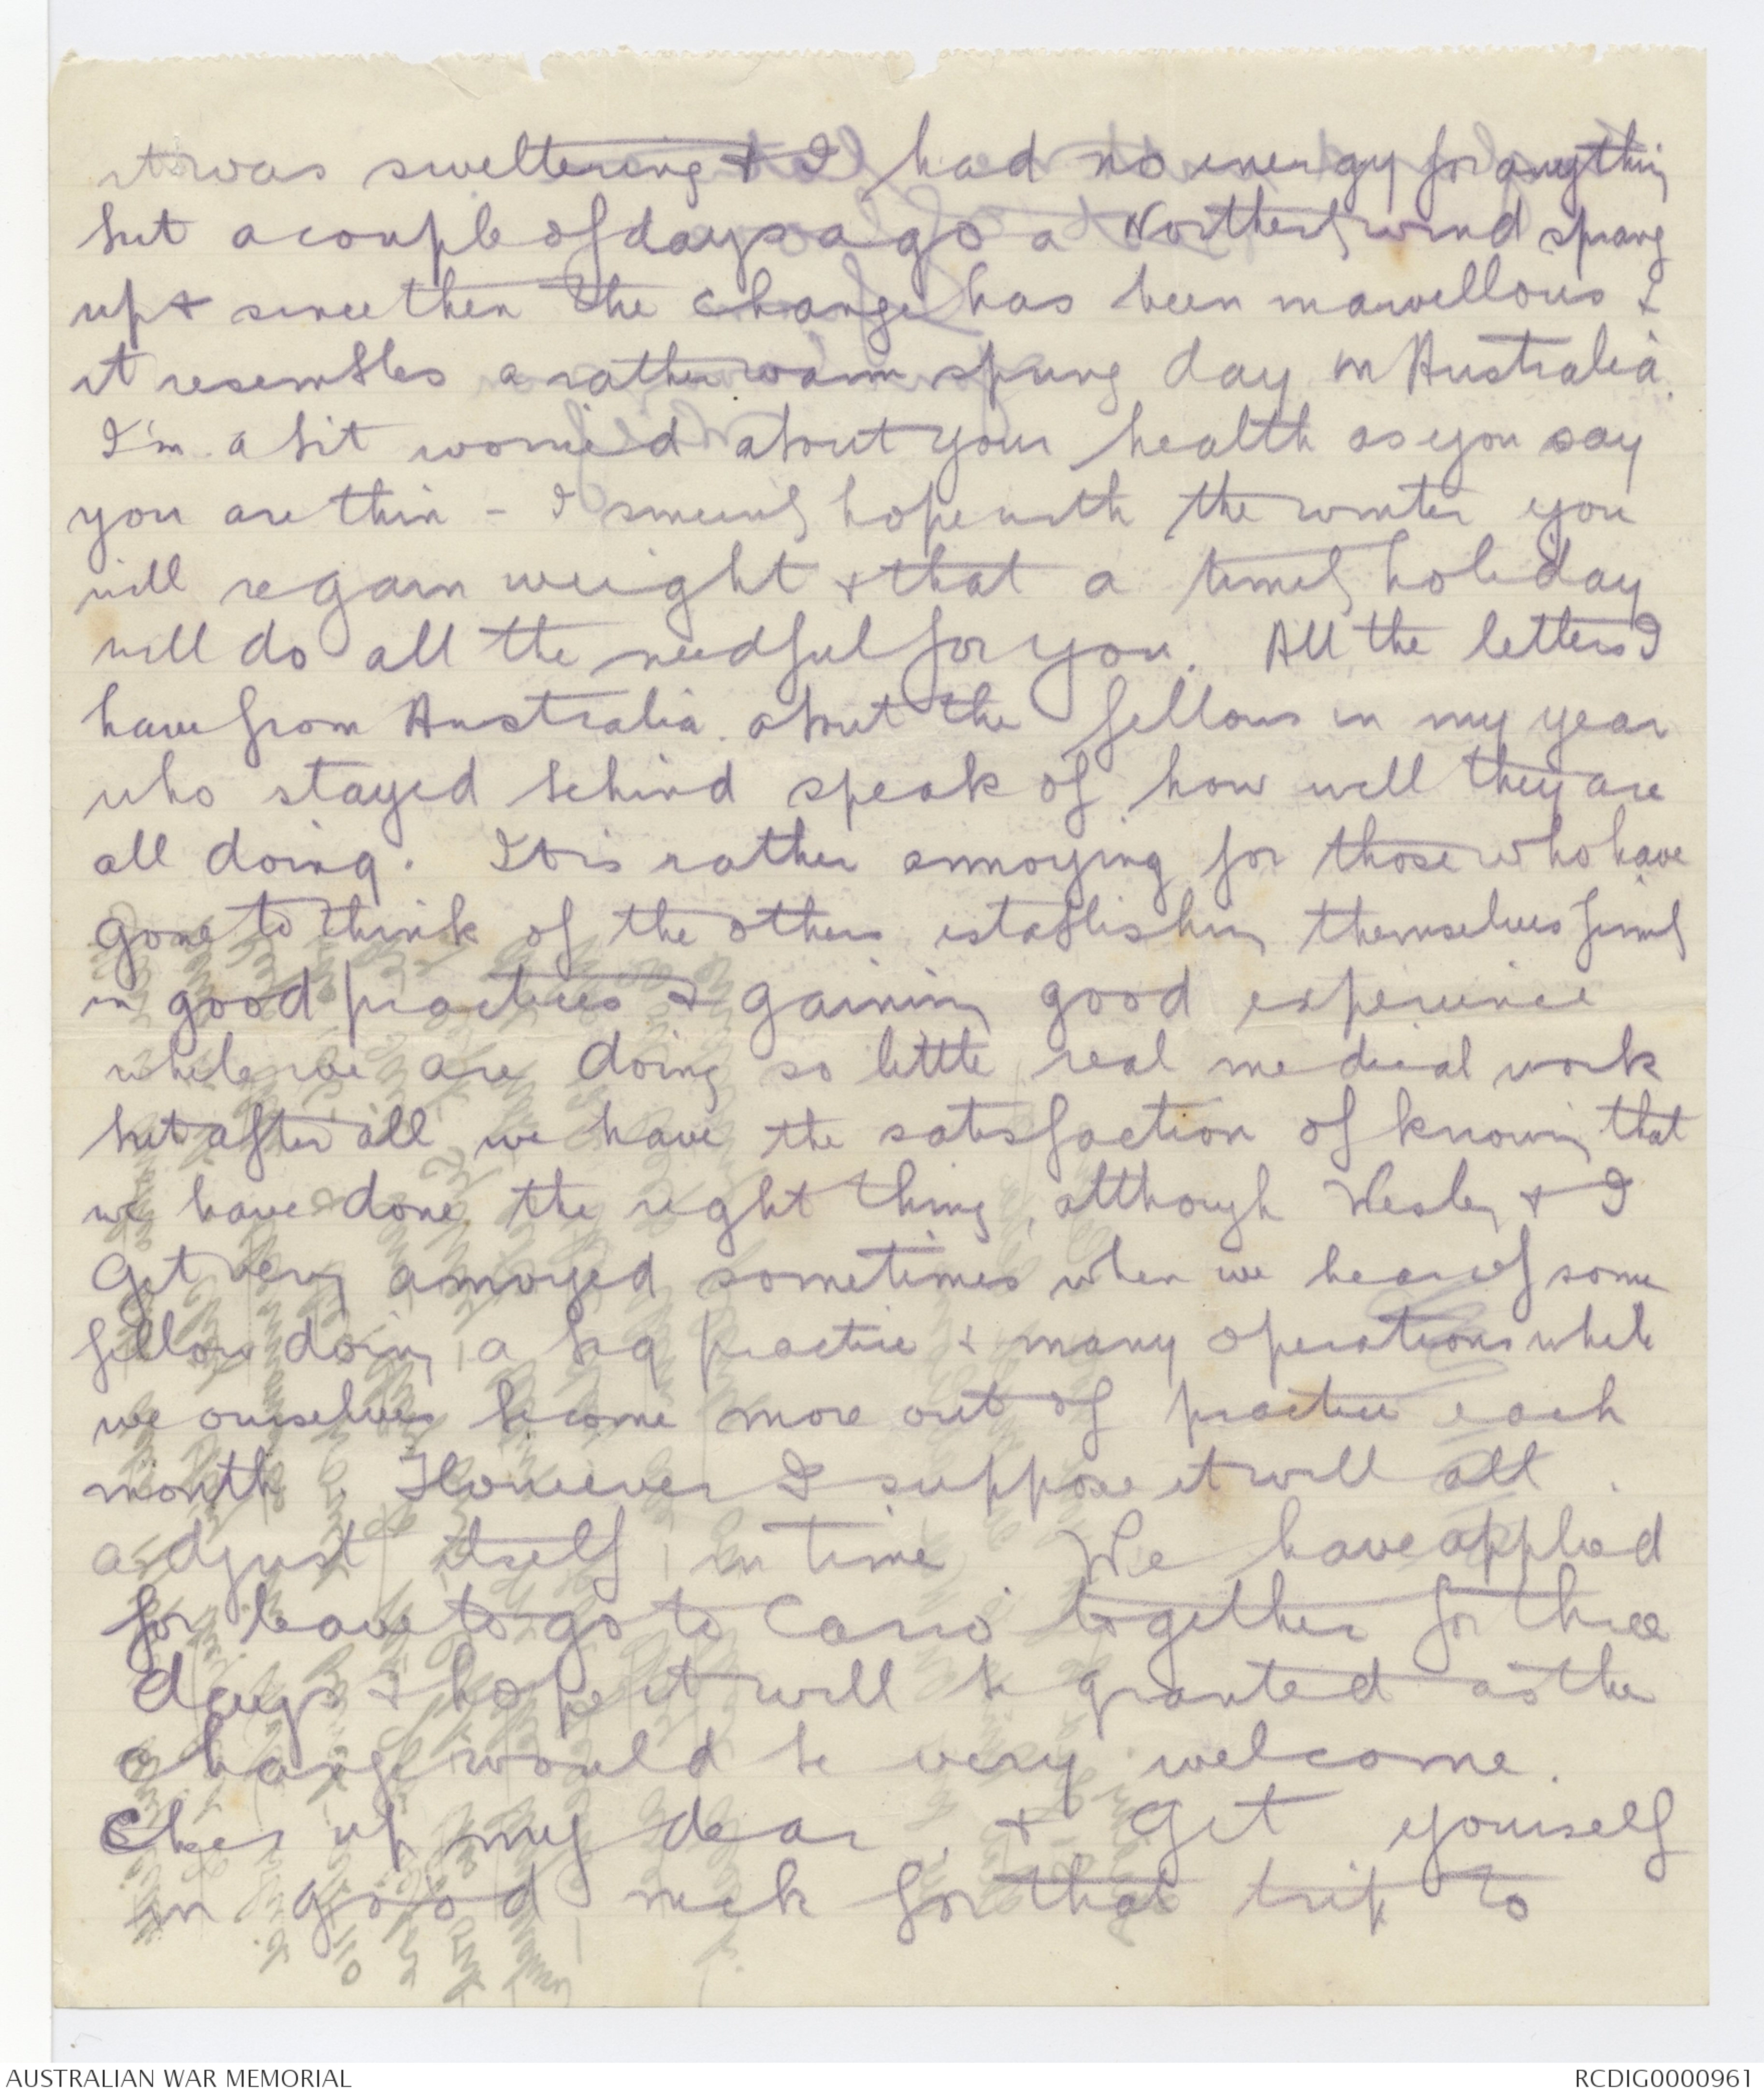 it was sweltering & I had no energy for anything
but a couple of days ago a Northerly wind sprang
up & since then the change has been marvellous &
it resembles a rather warm spring day in Australia.
I'm a bit worried about your health as you say
you are thin - I sincerely hope with the winter you
will regain weight & that a timely holiday
will do all the needful for you. All the letters I
have from Australia about the fellows in my year
who stayed behind speak of how well they are
all doing. It is rather annoying for those who have
gone to think of the others establishing themselves firmly
in good practices & gaining good experience
while we are doing so little real medical work
but after all we have the satisfaction of knowing that
we have done the right thing, although Wesley & I
get very annoyed sometimes when we hear of some
fellow doing a big practice & many operations while
we ourselves become more out of practice each
month. However I suppose it will all
adjust itself in time. We have applied
for leave to go to Cairo together for three
days & hope it will be granted as the
change would be very welcome.
Cheer up my dear, & get yourself
in good nick for that trip to
AUSTRALIAN WAR MEMORIAL
RCDIG0000961